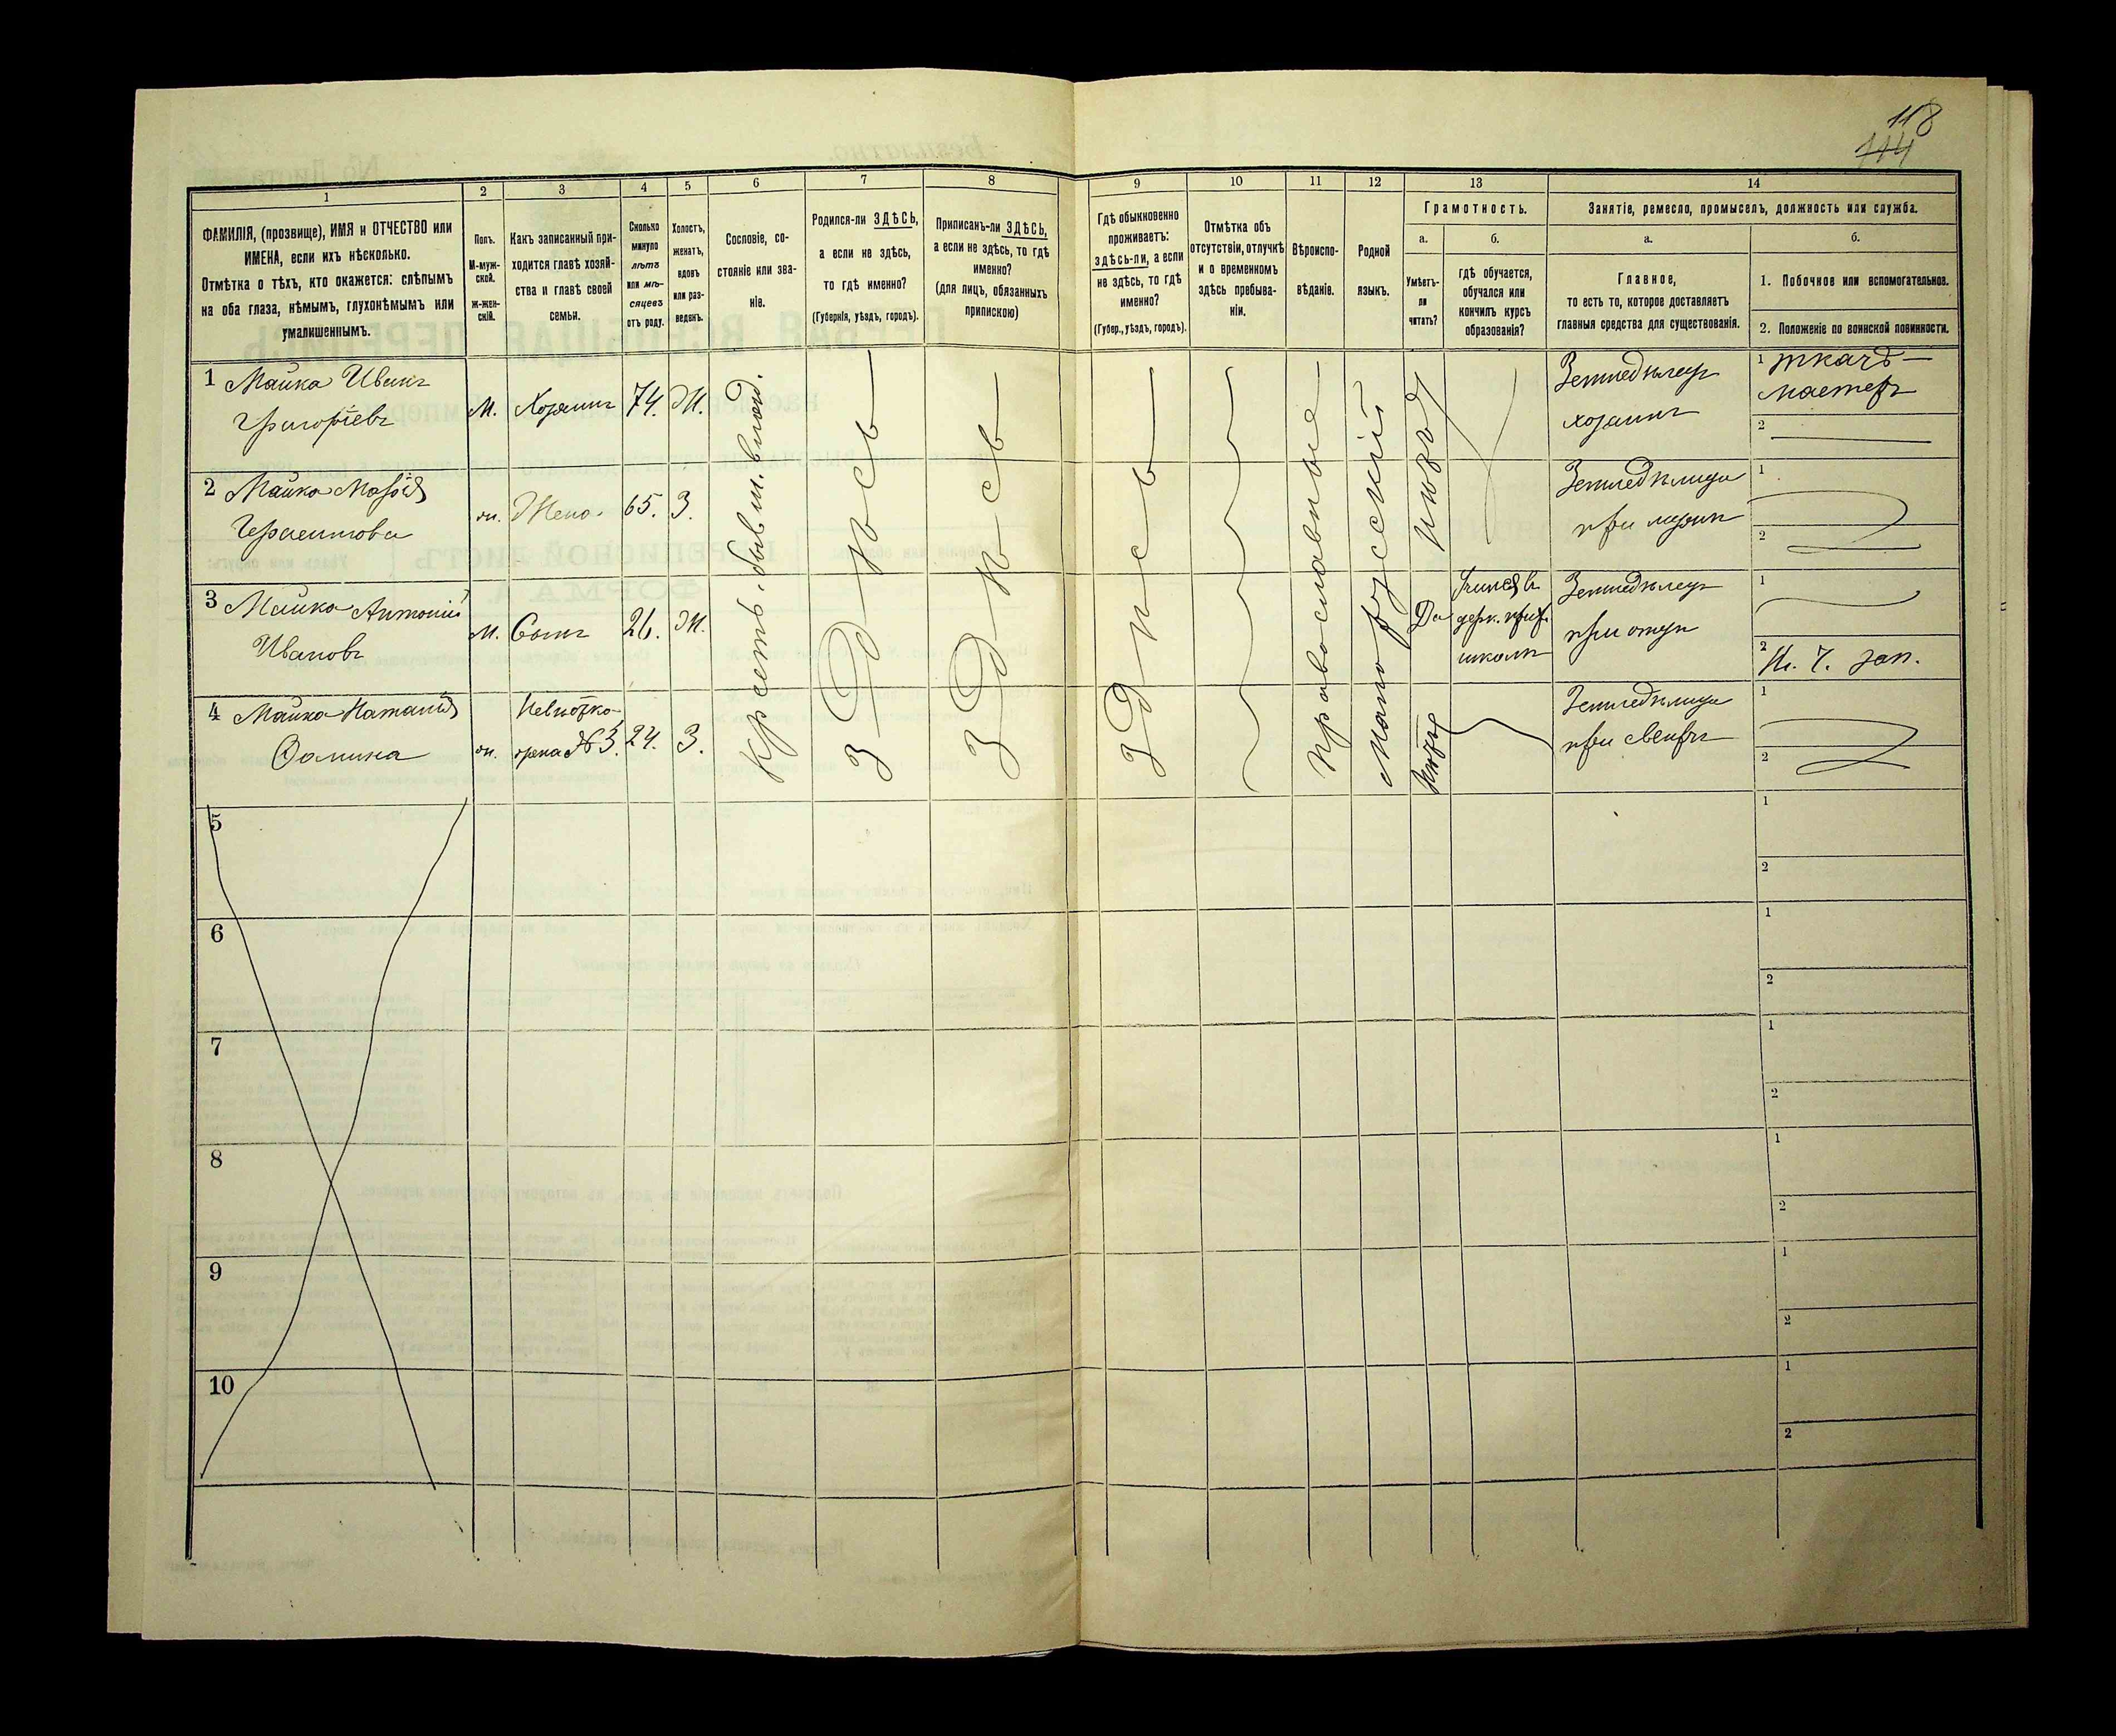 118
114
1
2
3
4
5
6
7
8
9
10
11
12
13
14
ФАМИЛІЯ, (прозвище), ИМЯ и ОТЧЕСТВО или
ИМЕНА, если ихъ нѣсколько.
Отмѣтка о тѣхъ, кто окажется: слѣпымъ
на оба глаза, нѣмымъ, глухонѣмымъ или
умалишеннымъ.
Полъ.
М-муж-
ской.
ж-жен-
скій.
Какъ записанный при-
ходится главѣ хозяй-
ства и главѣ своей
семьи.
Сколько
минуло
лѣтъ
или мѣ-
сяцевъ
отъ роду.
Холостъ,
женатъ,
вдовъ
или раз-
веденъ.
Сословіе, со-
стояніе или зва-
ніе.
Родился-ли ЗДѢСЬ,
а если не здѣсь,
то гдѣ именно?
(Губернія, уѣздъ, городъ).
Приписанъ-ли ЗДѢСЬ,
а если не здѣсь, то гдѣ
именно?
(для лицъ, обязанныхъ
припискою)
Гдѣ обыкновенно
проживаетъ:
здѣсь-ли, а если
не здѣсь, то гдѣ
именно?
(Губер., уѣздъ, городъ).
Отмѣтка объ
отсутствіи, отлучкѣ
и о временномъ
здѣсь пребыва-
ніи.
Вѣроиспо-
вѣданіе.
Родной
языкъ.
Грамотность.
а.
б.
Умѣетъ-
ли
читать?
гдѣ обучается,
обучался или
кончилъ курсъ
образованія?
Занятіе, ремесло, промыселъ, должность или служба.
а.
б.
Главное,
то есть то, которое доставляетъ
главныя средства для существованія.
1. Побочное или вспомогательное.
2. Положеніе по воинской повинности.
1 Майко Иванъ
Григоріевъ
М. Хозяинъ 74. Ж.
Крсетъ. бывш. влад.
Здѣсь
Здѣсь
Здѣсь
Православные
Малорусскій
Землѣдѣлецъ
хозяинъ
1 ткачъ
мастеръ
2
2 Майко Марія
Герасимова
ж. Жена. 65. З.
Землѣдѣлица
при мужѣ
1
2
3 Майко Антоній
Ивановъ
М. Сынъ 26. Ж.
Да
церк. приx.
школѣ
Землѣдѣлецъ
при отцѣ
1
2
зап.
4 Майко Наталія
Фомина
ж. Невѣстка
жена №3. 24. З.
Землѣдѣлица
при свекрѣ
1
2
5
1
2
6
1
2
7
1
2
8
1
2
9
1
2
10
1
2